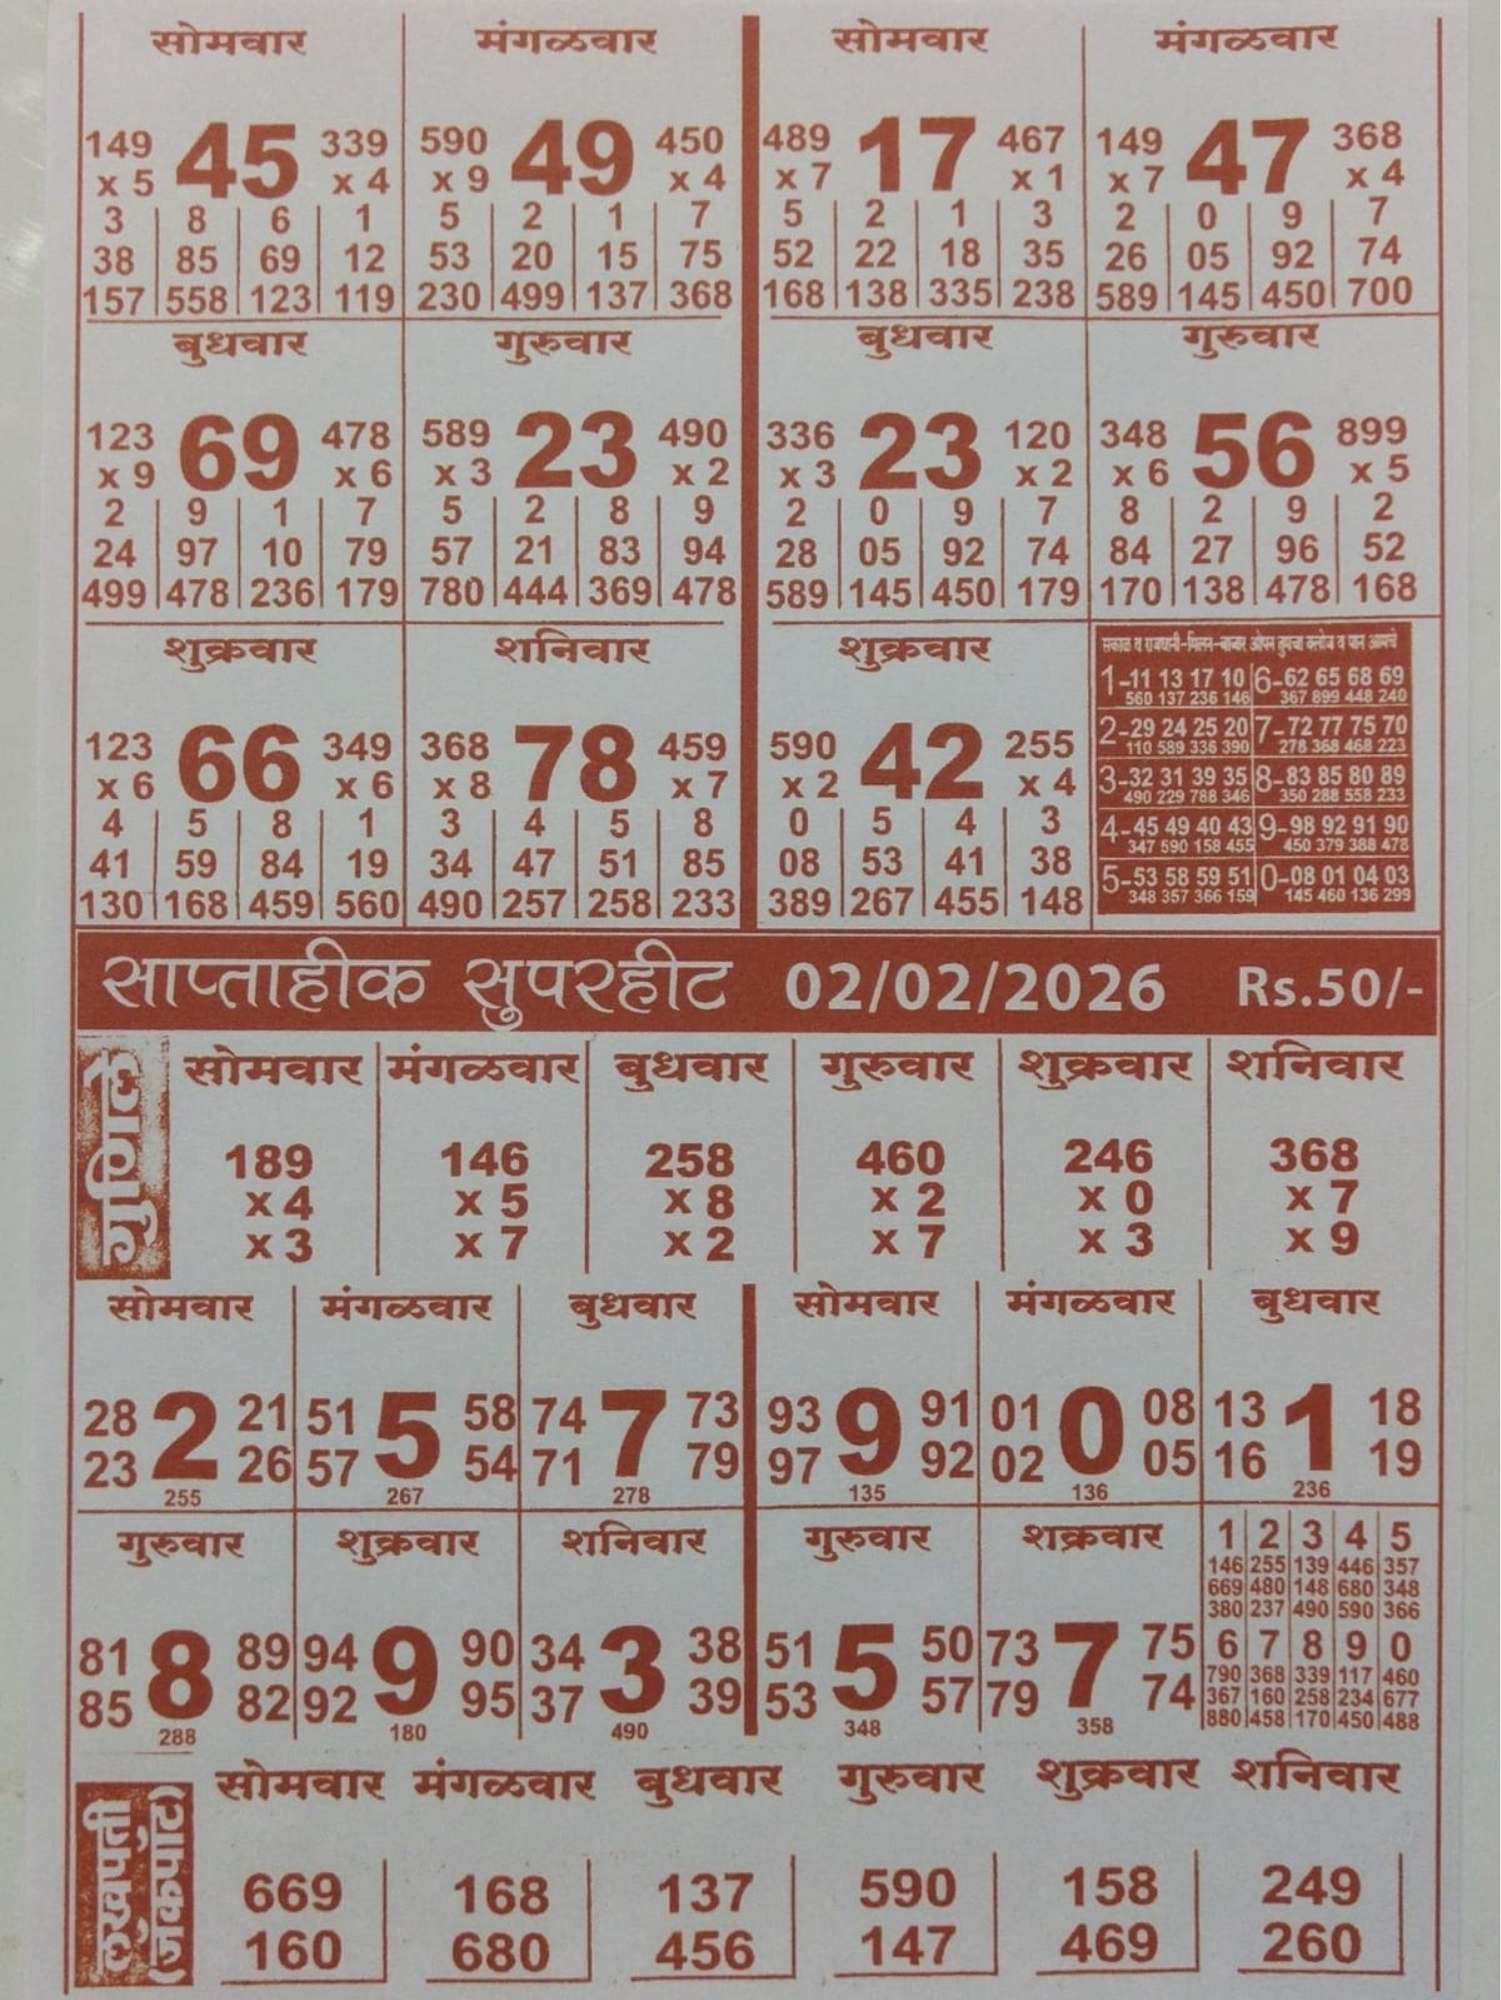 सोमवार मंगळवार सोमवार मंगळवार
149 45 339 590 49 450 489 17 467 149 47 368
x 5 x 4 x 9 x 4 x 7 x 1 x 7 x 4
3 8 6 1 5 2 1 7 5 2 1 3 2 0 9 7
38 85 69 12 53 20 15 75 52 22 18 35 26 05 92 74
157 558 123 119 230 499 137 368 168 138 335 238 589 145 450 700
बुधवार गुरुवार बुधवार गुरुवार
123 69 478 589 23 490 336 23 120 348 56 899
x 9 x 6 x 3 x 2 x 3 x 2 x 6 x 5
2 9 1 7 5 2 8 9 2 0 9 7 8 2 9 2
24 97 10 79 57 21 83 94 28 05 92 74 84 27 96 52
499 478 236 179 780 444 369 478 589 145 450 179 170 138 478 168
शुक्रवार शनिवार शुक्रवार
123 66 349 368 78 459 590 42 255
x 6 x 6 x 8 x 7 x 2 x 4
4 5 8 1 3 4 5 8 0 5 4 3
41 59 84 19 34 47 51 85 08 53 41 38
130 168 459 560 490 257 258 233 389 267 455 148
सकाळ व राजधानी-मिलन-बाजार ओपन तुमचा क्लोज व पान आमचे
1-11 13 17 10 6-62 65 68 69
560 137 236 146 367 899 448 240
2-29 24 25 20 7-72 77 75 70
110 589 336 390 278 368 468 223
3-32 31 39 35 8-83 85 80 89
490 229 788 346 350 288 558 233
4-45 49 40 43 9-98 92 91 90
347 590 158 455 450 379 388 478
5-53 58 59 51 0-08 01 04 03
348 357 366 159 145 460 136 299
साप्ताहीक सुपरहीट 02/02/2026 Rs.50/-
गुणिले
सोमवार मंगळवार बुधवार गुरुवार शुक्रवार शनिवार
189 146 258 460 246 368
x 4 x 5 x 8 x 2 x 0 x 7
x 3 x 7 x 2 x 7 x 3 x 9
सोमवार मंगळवार बुधवार सोमवार मंगळवार बुधवार
28 2 21 51 5 58 74 7 73 93 9 91 01 0 08 13 1 18
23 26 57 54 71 79 97 92 02 05 16 19
255 267 278 135 136 236
गुरुवार शुक्रवार शनिवार गुरुवार शक्रवार
81 8 89 94 9 90 34 3 38 51 5 50 73 7 75
85 82 92 95 37 39 53 57 79 74
288 180 490 348 358
1 2 3 4 5
146 255 139 446 357
669 480 148 680 348
380 237 490 590 366
6 7 8 9 0
790 368 339 117 460
367 160 258 234 677
880 458 170 450 488
लखपती
(जॅकपॉट)
सोमवार मंगळवार बुधवार गुरुवार शुक्रवार शनिवार
669 168 137 590 158 249
160 680 456 147 469 260